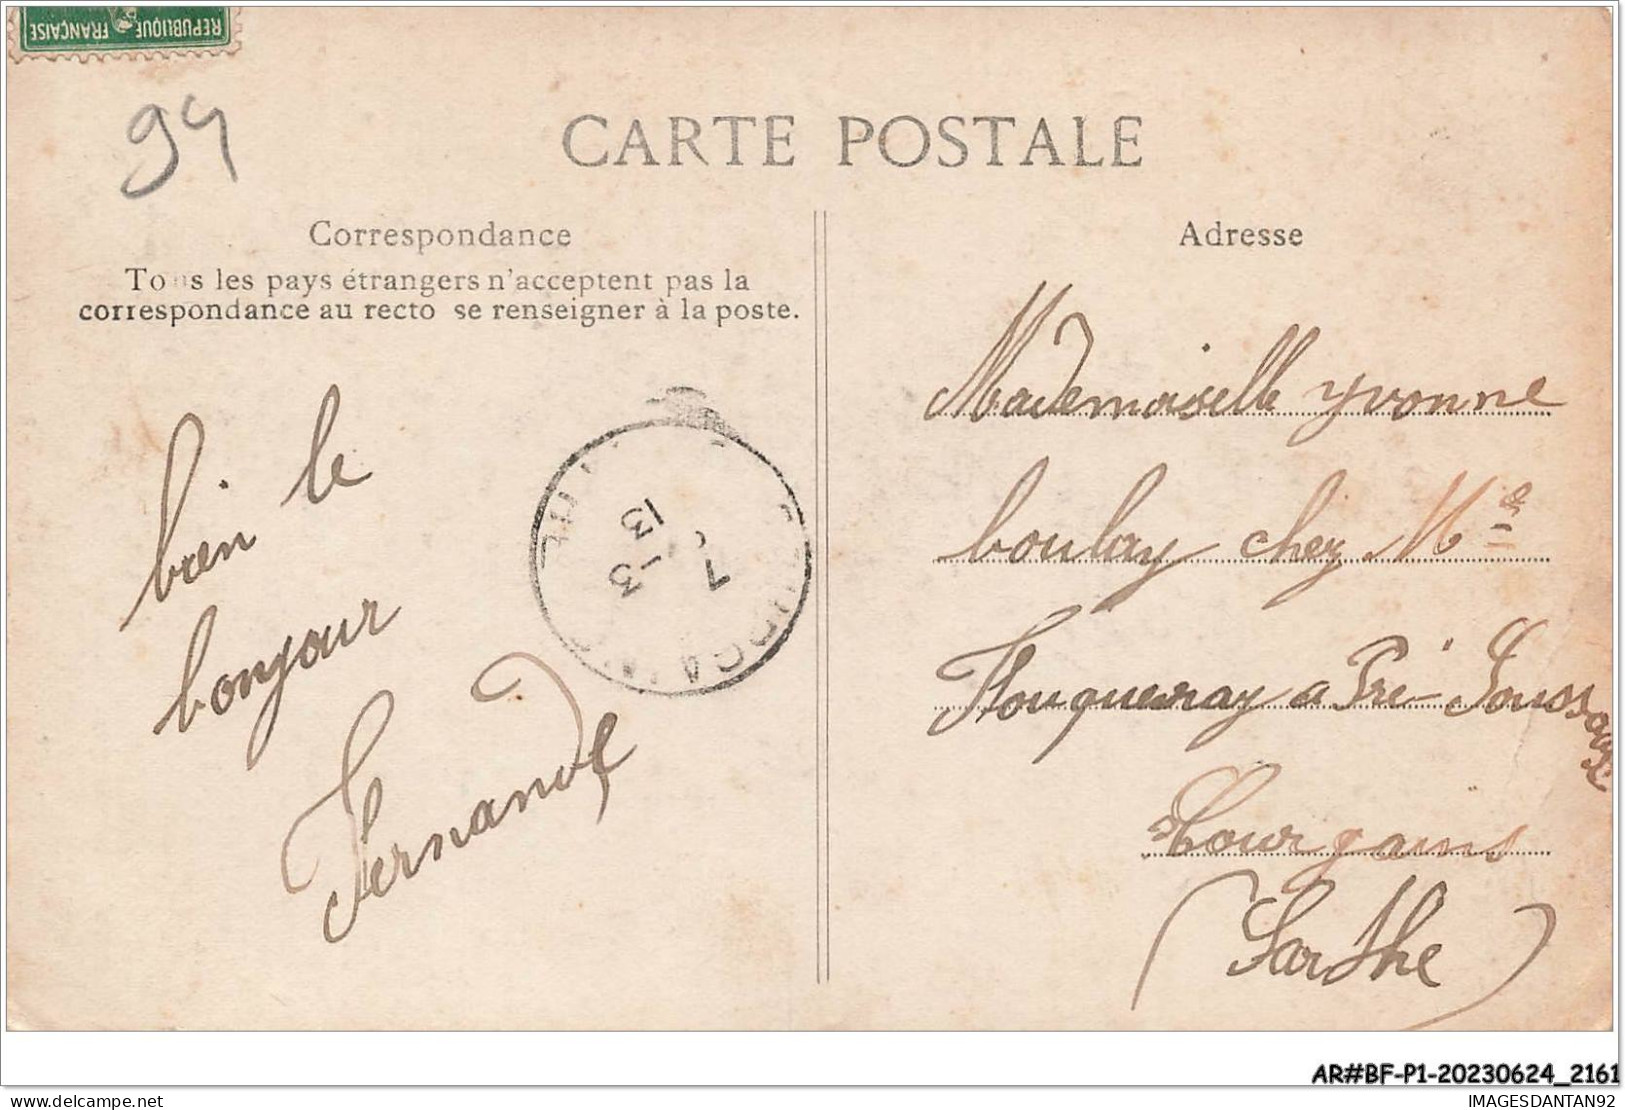 REPUBLIQUE FRANÇAISE
94
CARTE POSTALE
Correspondance
Adresse
Tous les pays étrangers n'acceptent pas la
correspondance au recto se renseigner à la poste.
bien le
bonjour
Fernande
7 -3
13
Mademoiselle yvonne
boulay chez Mr
Fouqueray a Pré-
Courgains
(Sarthe)
AR#BF-P1-20230624_2161
delcampe.net
IMAGESDANTAN92